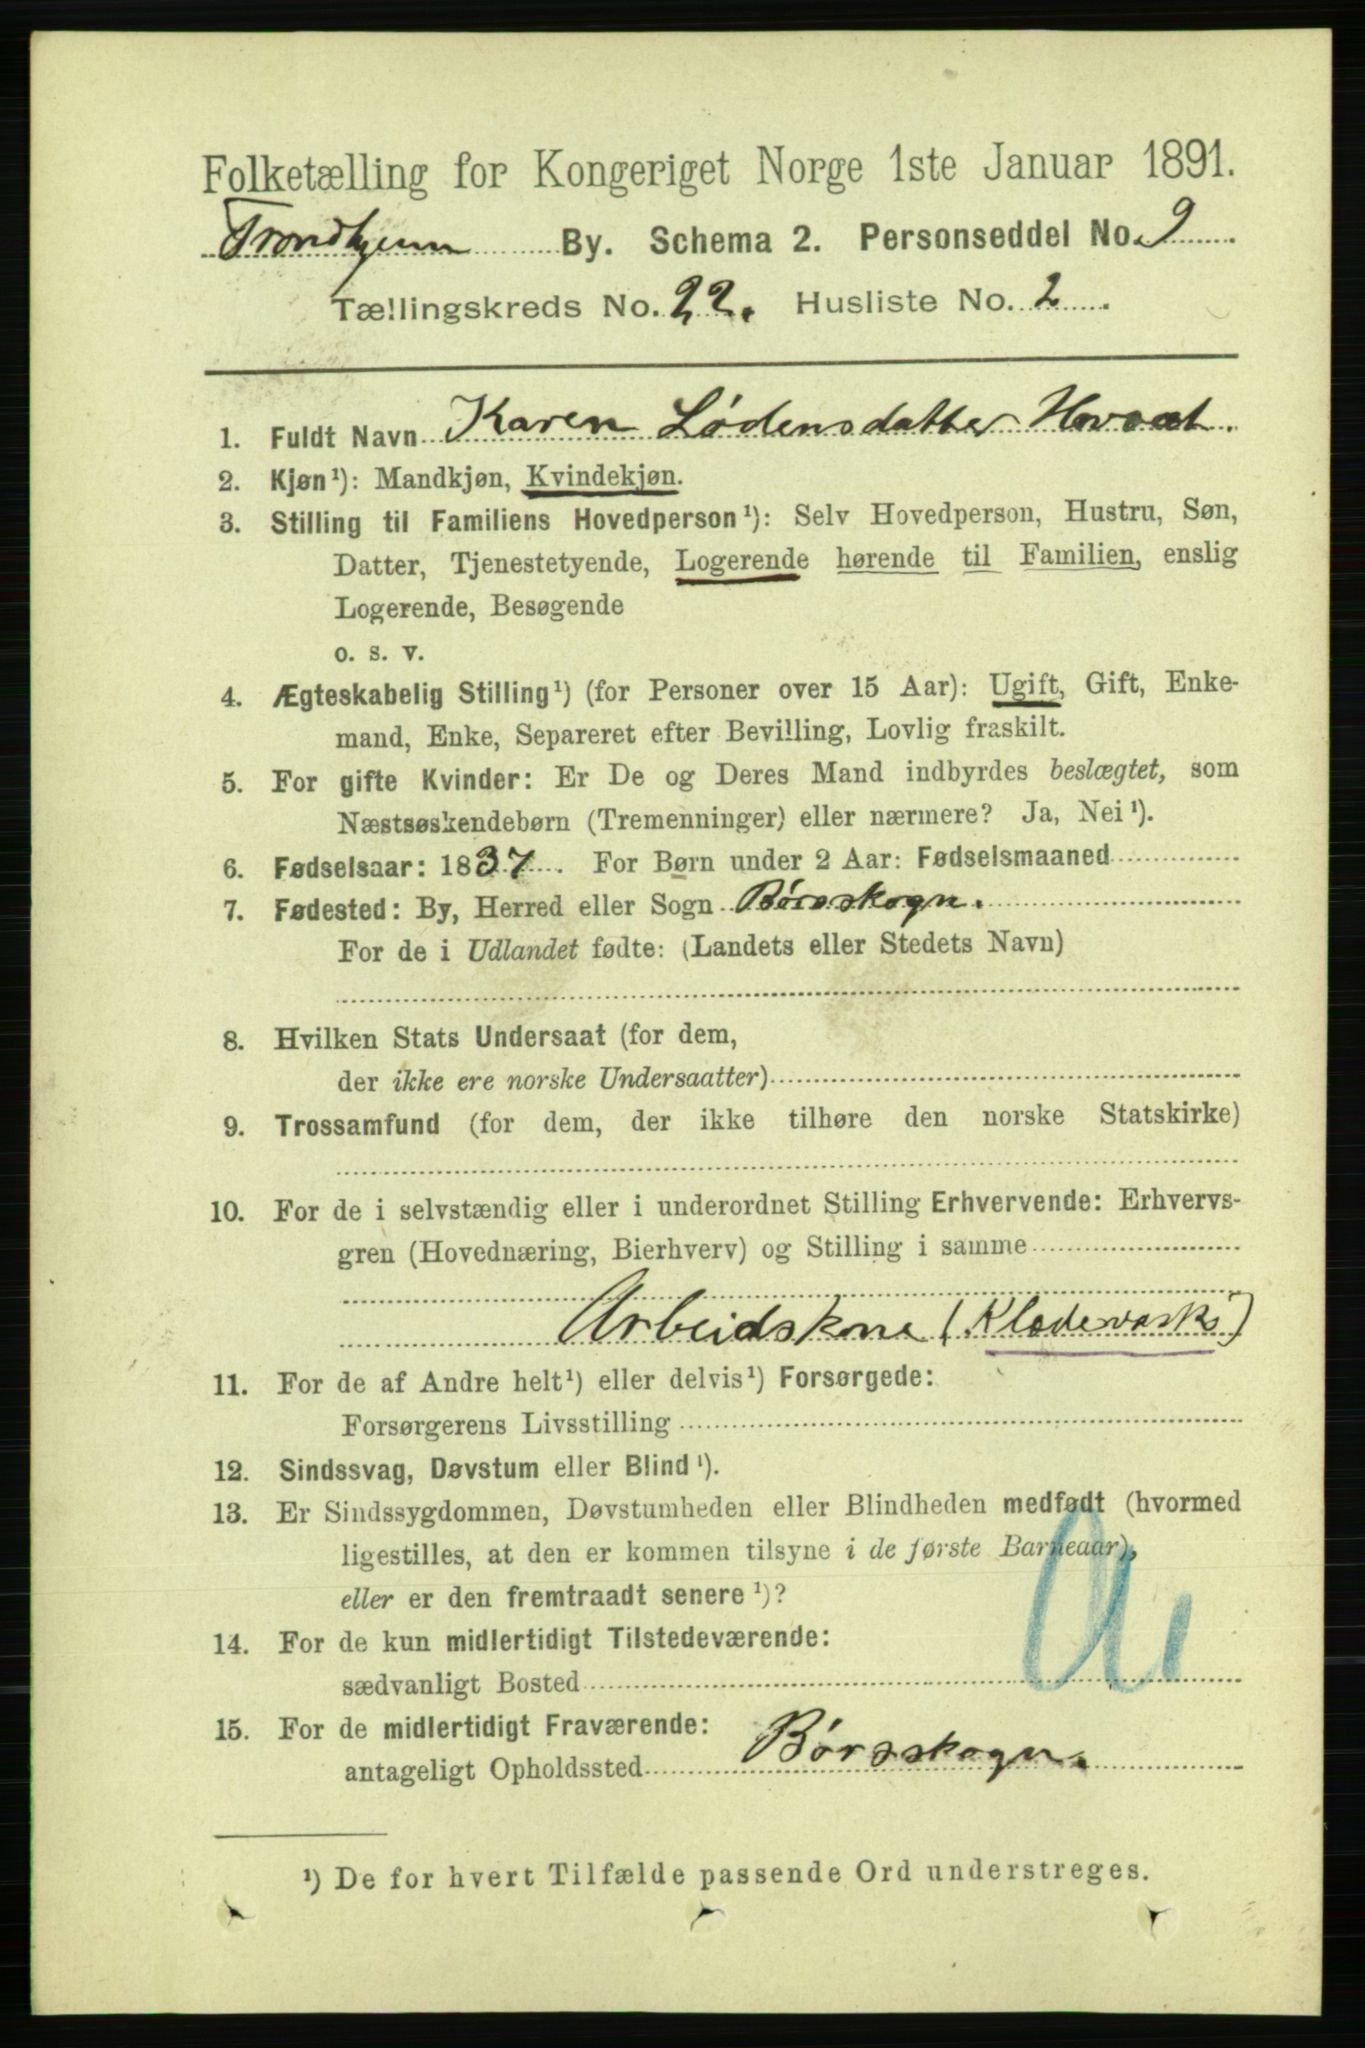 Folketælling for Kongeriget Norge 1ste Januar 1891.
Trondhjem By. Schema 2. Personseddel No. 9
Tællingskreds No. 22. Husliste No. 2.
1. Fuldt Navn Karen Lødensdatter
2. Kjøn¹): Mandkjøn, Kvindekjøn.
3. Stilling til Familiens Hovedperson¹): Selv Hovedperson, Hustru, Søn,
Datter, Tjenestetyende, Logerende hørende til Familien, enslig
Logerende, Besøgende
o. s. v.
4. Ægteskabelig Stilling¹) (for Personer over 15 Aar): Ugift, Gift, Enke-
mand, Enke, Separeret efter Bevilling, Lovlig fraskilt.
5. For gifte Kvinder: Er De og Deres Mand indbyrdes beslægtet, som
Næstsøskendebørn (Tremenninger) eller nærmere? Ja, Nei¹).
6. Fødselsaar: 1837. For Børn under 2 Aar: Fødselsmaaned
7. Fødested: By, Herred eller Sogn Børsskogn.
For de i Udlandet fødte: (Landets eller Stedets Navn)
8. Hvilken Stats Undersaat (for dem,
der ikke ere norske Undersaatter)
9. Trossamfund (for dem, der ikke tilhøre den norske Statskirke)
10. For de i selvstændig eller i underordnet Stilling Erhvervende: Erhvervs-
gren (Hovednæring, Bierhverv) og Stilling i samme
Arbeidskone (Klædevask)
11. For de af Andre helt¹) eller delvis¹) Forsørgede:
Forsørgerens Livsstilling
12. Sindssvag, Døvstum eller Blind¹).
13. Er Sindssygdommen, Døvstumheden eller Blindheden medfødt (hvormed
ligestilles, at den er kommen tilsyne i de første Barneaar),
eller er den fremtraadt senere¹)?
14. For de kun midlertidigt Tilstedeværende:
sædvanligt Bosted
15. For de midlertidigt Fraværende:
antageligt Opholdssted Børsskogn.
¹) De for hvert Tilfælde passende Ord understreges.